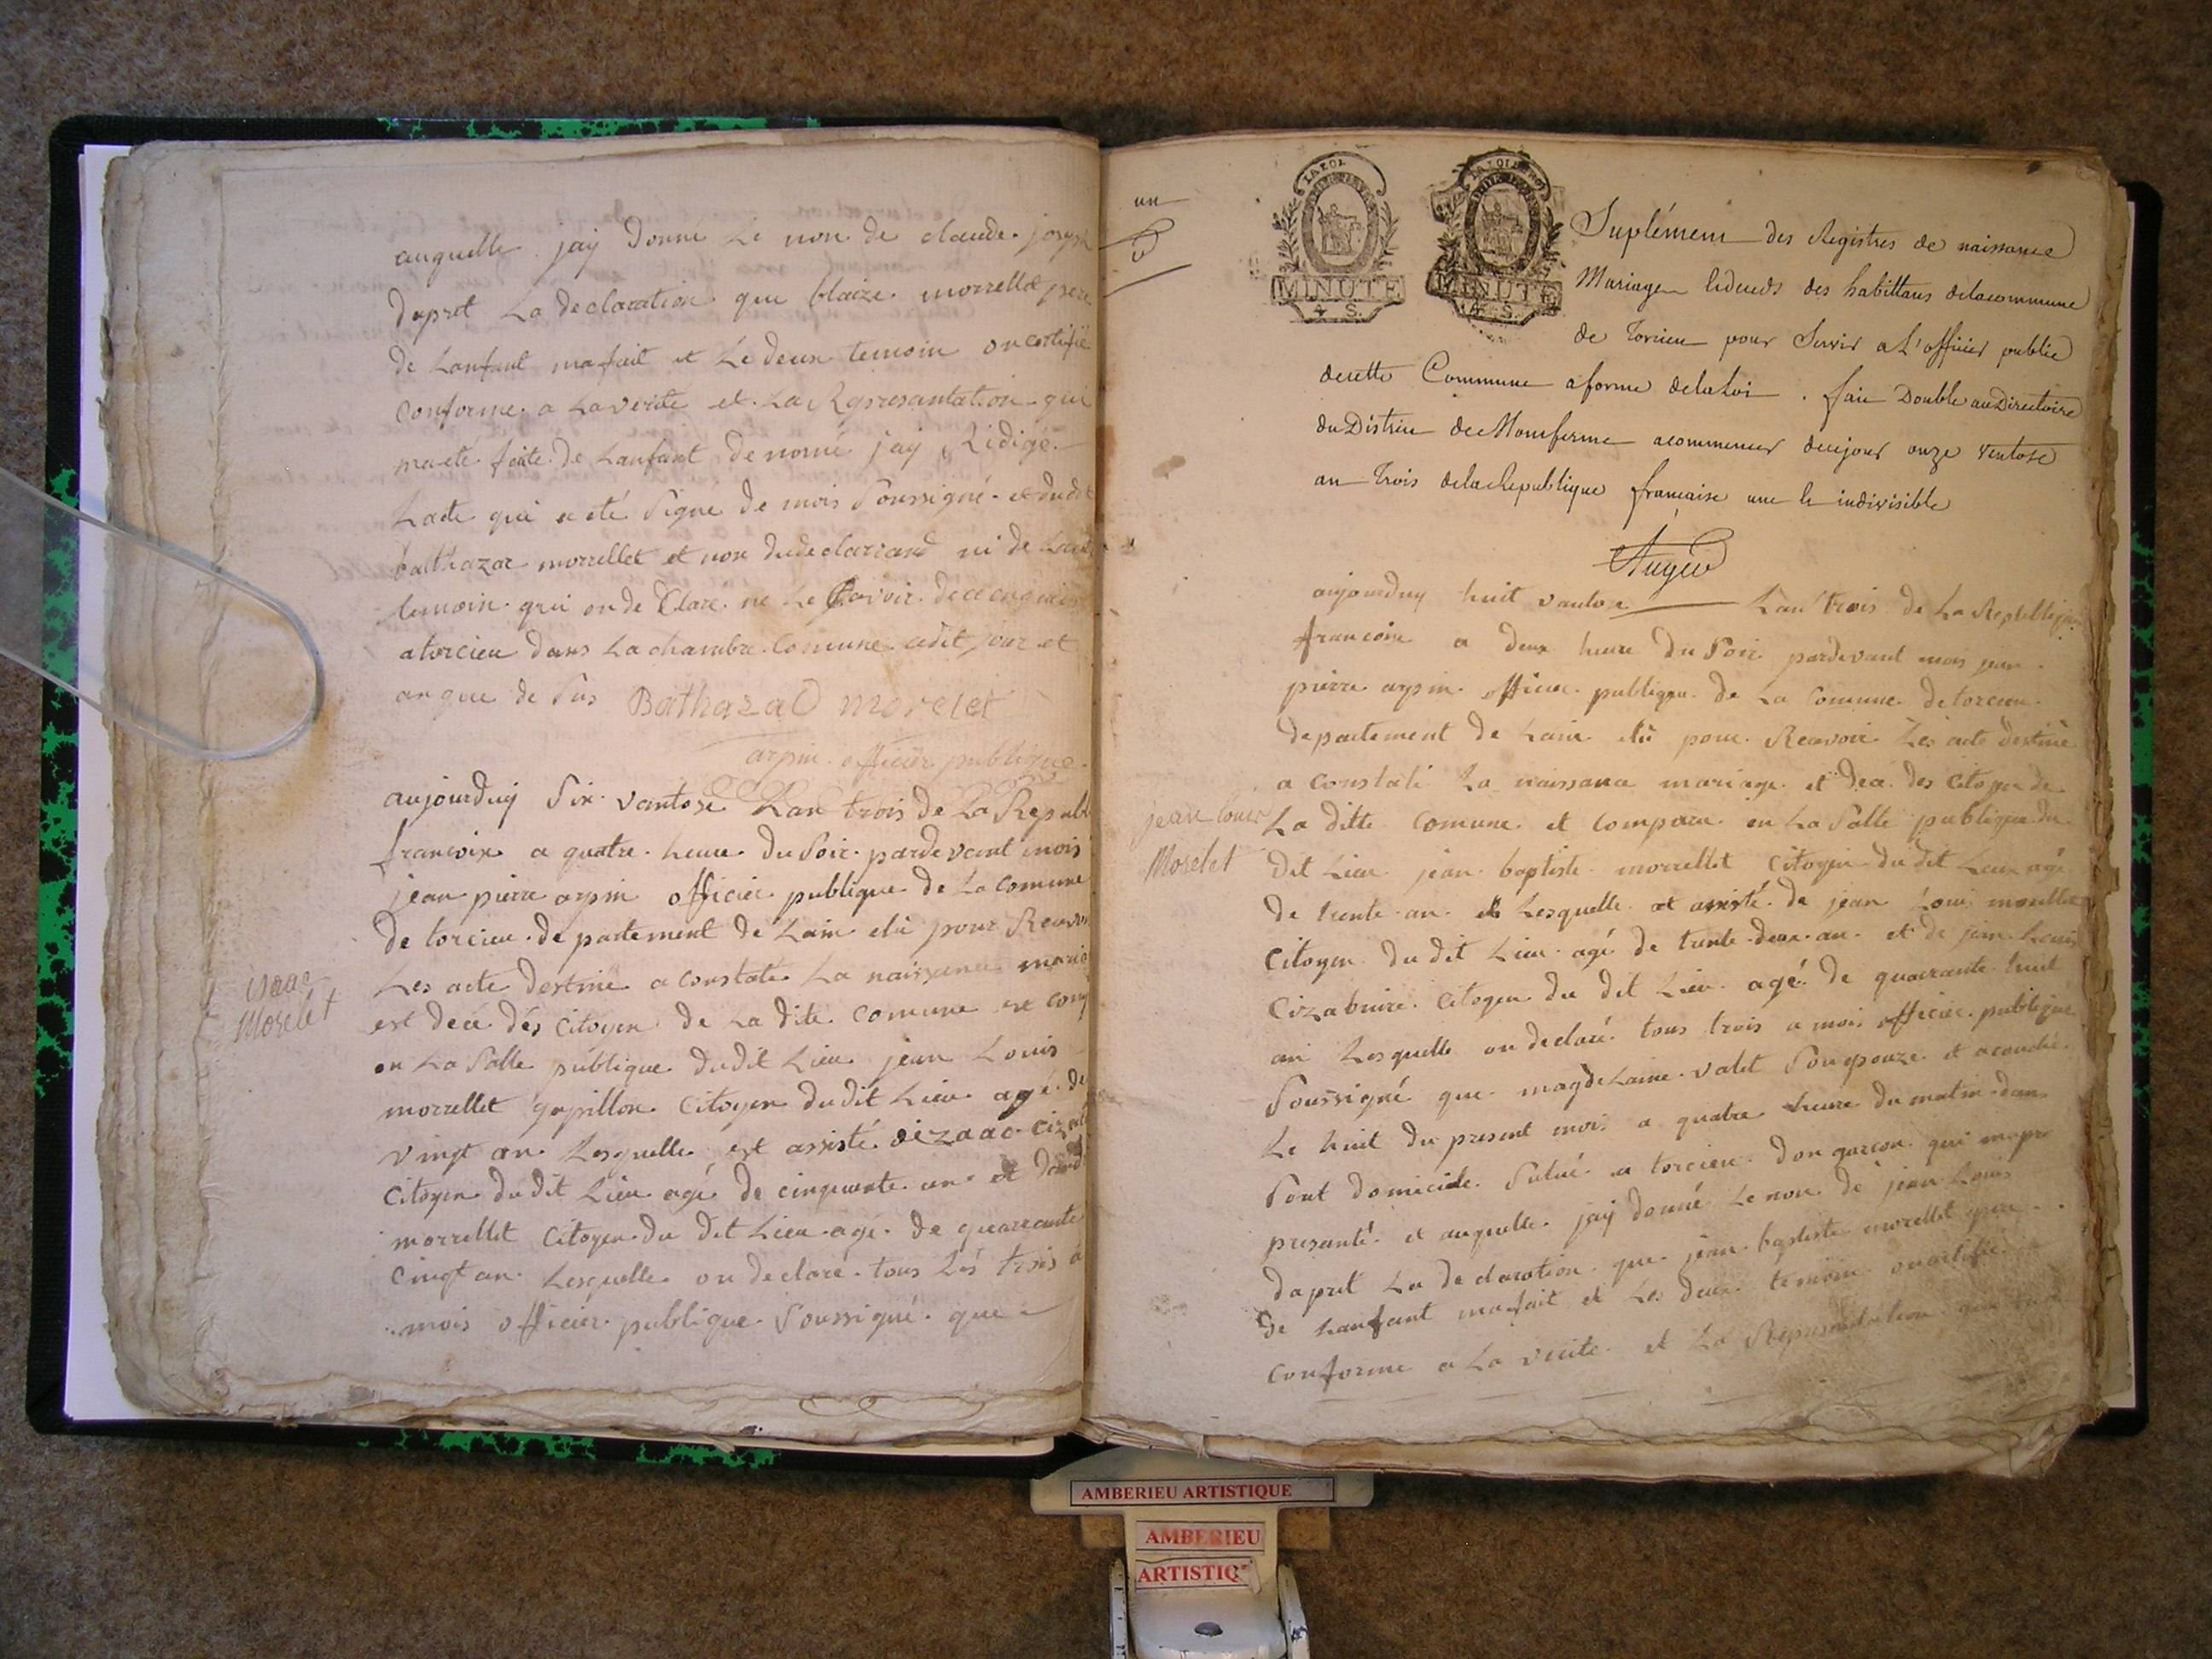 auquelle jaÿ donne Le non de claude joseph
dapret La declaration que blaize morrellet pere
de Lanfant ma fait et Le deux temoin on certifié
conforme a La verite et La Represantation qui
ma eté faite de Lanfant denomé jay Redigé
Lacte qui a eté Signe de mois Soussigné et dudit
balthazar morrellet et non du declarrand ni de Lautre
temoin qui on de Clare ne Le Savoir de ce enquis
a torcieu dans La chambre Comune Ledit jour et
an que de Sus Bathazad morelet
arpin officier publique
aujourduy Six vantose Lan trois de La Republ
francoise a quatre heure du Soir pardevant mois
jean pierre arpin officier publique de La comune
de torcieu departement de Lain elü pour Recevoir
Les acte destiné a constate La naissance maria
est decé dés Citoyen de La dite comune est comp
en La Salle publique dudit Lieu jean Louis
isaac
Morelet
morrellet papillon Citoyen dudit Lieu agé de
vingt an Lesquelle est assisté dizaac
Citoyen dudit Lieu agé de cinquante an et
morrellet Citoyen du dit Lieu agé de quarrante
Cinqt an Lesquelle on declaré tous Lés trois a
mois officier publique Soussigné que
un
LA LOI
MINUTE
4 S.
LA LOI
MINUTE
4 S.
Suplément des Registres de naissance
Mariage & deceds des habittans delacommune
de Torcieu pour Servir a L'officier public
decette Commune aforme delaLoi . fait Double auDirectoire
duDistrict deMontferme acommencer decejour onze ventose
an Trois delaRepublique francaise une & indivisible
Auger
aujourduy huit vantose Lan trois de La Republique
francoise a deux heure du Soir pardevant mois jean
pierre arpin officier publique de La Comune de torcieu
departement de Lain elü pour Recevoir Les acte destiné
a constate La naissance mariage et decé des Citoyen de
jean Louis
Morelet
La ditte Comune et compare en La Salle publique du
dit Lieu jean baptiste morrellet Citoyen du dit Lieu agé
de trente an Lesquelle et assisté de jean Loui morellet
Citoyen du dit Lieu agé de trente deux an et de jean Louis
Cizabuire Citoyen du dit Lieu agé de quarante huit
an Lesquelle on declaré tous trois a mois officier publique
Soussigné que magdeLaine valet Son epouze et acouché
Le huit du present mois a quatre heure du matin dans
Sont domicide Situé a torcieu don garcon qui mapre
presanté et auquelle jaÿ donné Le non de jean Louis
dapret La declaration que jean baptiste morellet pere
de Lanfant ma fait et Les deux temoin on certifié
conforme a La verite et La Represantation qui
AMBERIEU ARTISTIQUE
AMBERIEU
ARTISTIQ